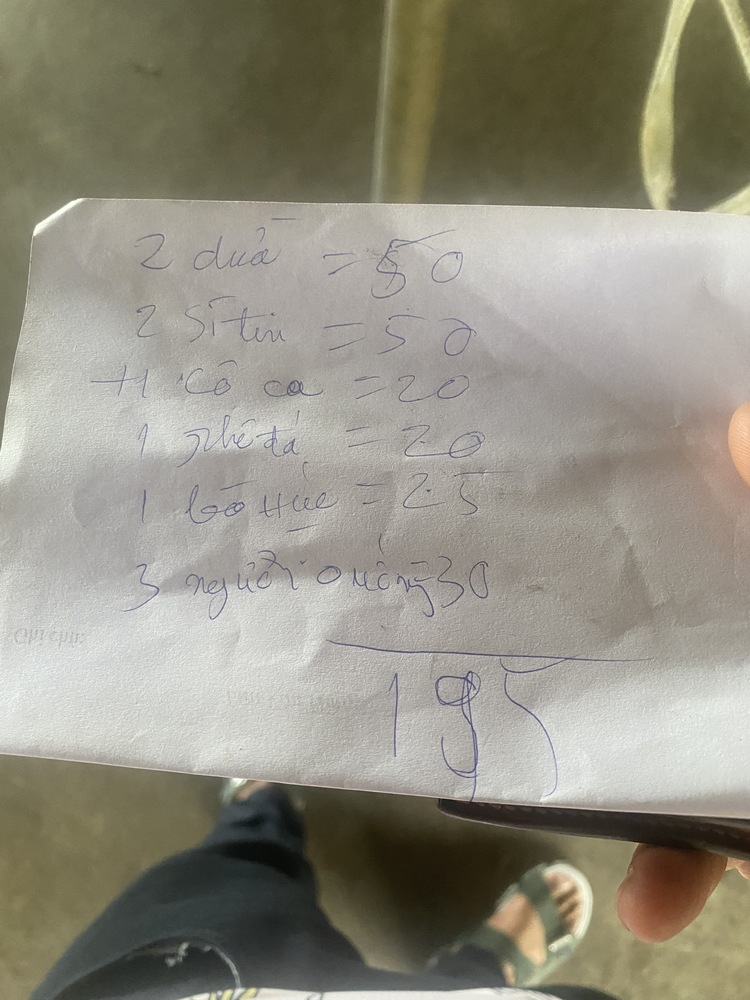 2 dừa = 50
2 Sĩ tin = 50
1 Cô ca = 20
1 phê đá = 20
1 bò Húc = 25
3 người 30
195
Ghi chú: